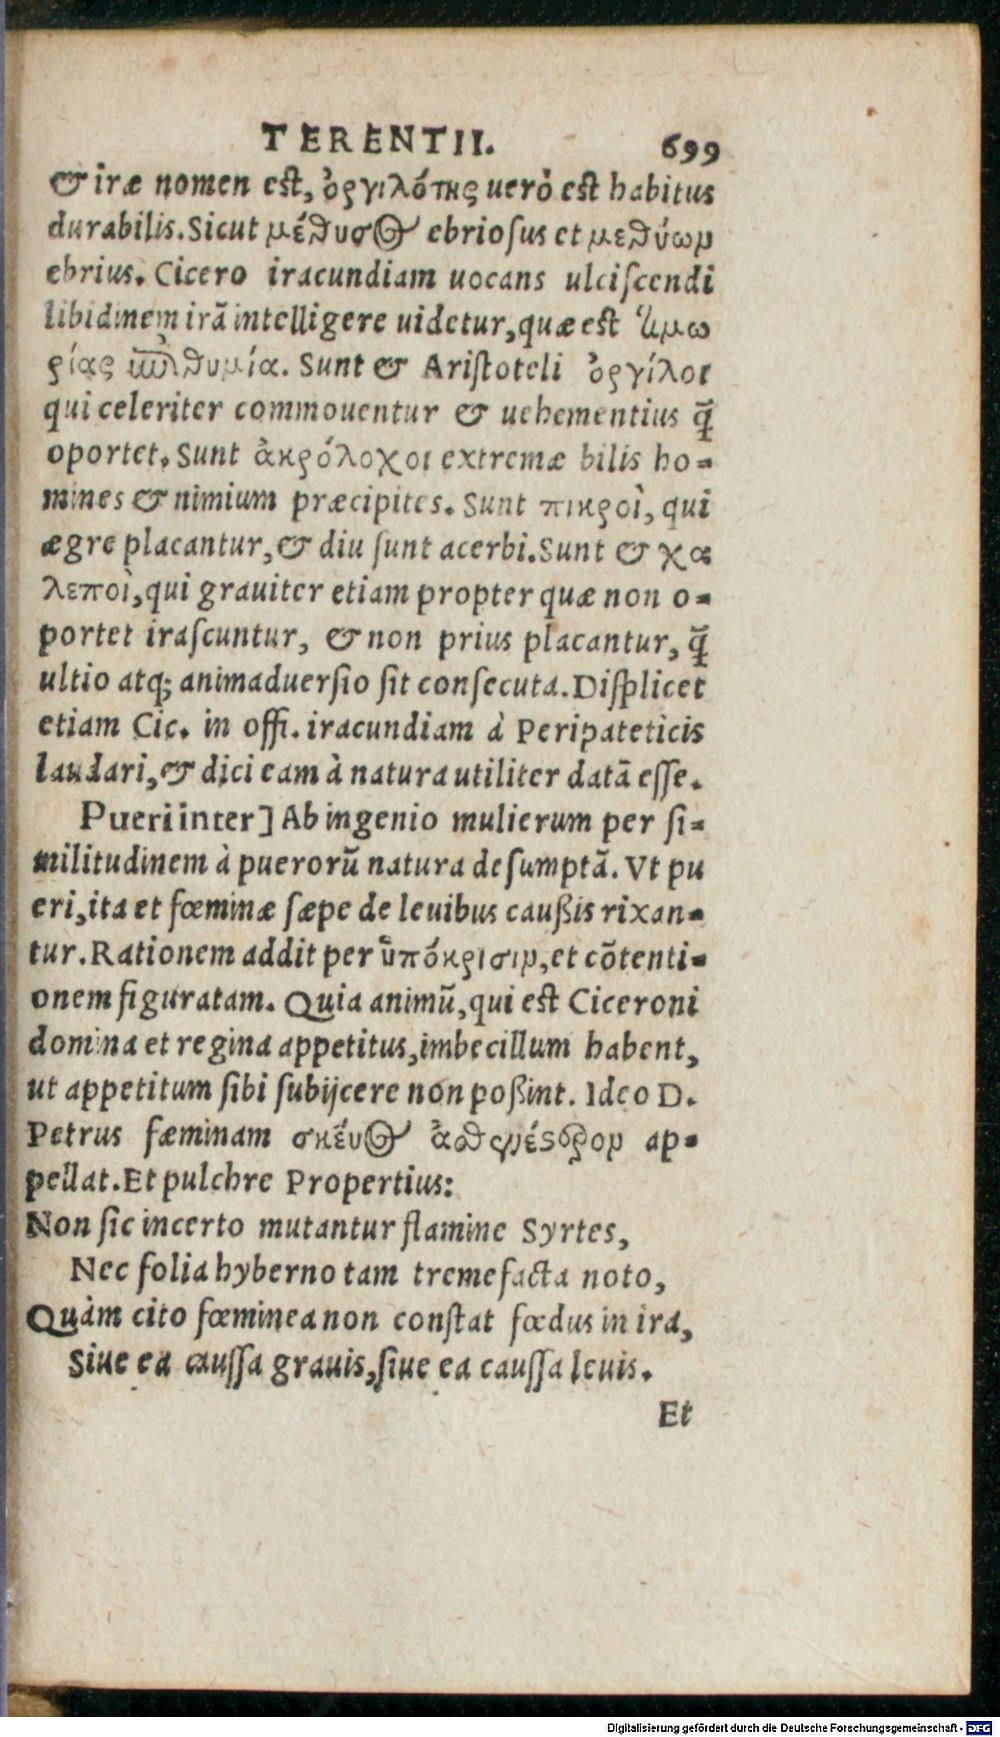 TERENTII. 699
& iræ nomen est, ὀργιλότης uerò est habitus
durabilis. Sicut μέθυσος ebriosus et μεθύων
ebrius. Cicero iracundiam uocans ulciscendi
libidinem irā intelligere uidetur, quæ est τιμω
ρίας ἐπιθυμία. Sunt & Aristoteli ὀργίλοι
qui celeriter commouentur & uehementius q̃
oportet. Sunt ἀκρόλοχοι extremæ bilis ho-
mines & nimium præcipites. Sunt πικροὶ, qui
ægre placantur, & diu sunt acerbi. Sunt & χα
λεποὶ, qui grauiter etiam propter quæ non o-
portet irascuntur, & non prius placantur, q̃
ultio atq; animaduersio sit consecuta. Displicet
etiam Cic. in offi. iracundiam à Peripateticis
laudari, & dici eam à natura utiliter datā esse.
Pueri inter] Ab ingenio mulierum per si-
militudinem à puerorū natura desumptā. Vt pu
eri, ita et fœminæ sæpe de leuibus caußis rixan-
tur. Rationem addit per ὑπόκρισιν, et cōtenti-
onem figuratam. Quia animū, qui est Ciceroni
domina et regina appetitus, imbecillum habent,
ut appetitum sibi subijcere non poßint. Ideo D.
Petrus fæminam σκέυος ἀσθενέστερον ap-
pellat. Et pulchre Propertius:
Non sic incerto mutantur flamine Syrtes,
Nec folia hyberno tam tremefacta noto,
Quàm cito fœminea non constat fœdus in ira,
Siue ea caussa grauis, siue ea caussa leuis.
Et
Digitalisierung gefördert durch die Deutsche Forschungsgemeinschaft - DFG